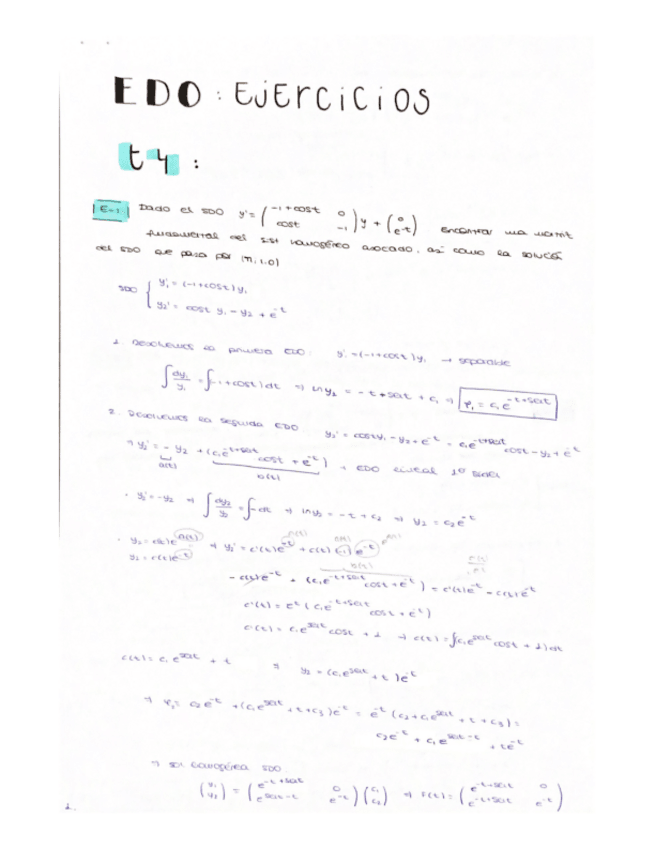 EDO : EJERCICIOS
t4 :
E-1 Dado el SDO y' = ( -1+cost 0 ; cost -1 ) y + ( 0 ; e^-t ) encontrar una matriz
fundamental del sist homogéneo asociado, así como la solución
del SDO que pasa por (π,1,0)
SDO { y₁' = (-1+cost) y₁
y₂' = cost y₁ - y₂ + e^-t
1. Resolvemos la primera EDO: y₁' = (-1+cost) y₁ → separable
∫ dy₁/y₁ = ∫ -1+cost) dt ⇒ ln y₁ = -t + sect + c₁ ⇒ φ₁ = c₁e^-t+sect
2. Resolvemos la segunda EDO y₂' = cost y₁ - y₂ + e^-t = c₁e^-t+sect cost - y₂ + e^-t
⇒ y₂' = - y₂ + (c₁e^-t+sect cost + e^-t) → EDO lineal 1º
a(t) b(t)
· y₂' = -y₂ ⇒ ∫ dy₂/y₂ = ∫ -dt ⇒ ln y₂ = -t + c₂ ⇒ y₂ = c₂e^-t
· y₂ = c(t)e^A(t) ⇒ y₂' = c'(t)e^-t + c(t) (-1) e^-t
y₂ = c(t)e^-t b(t)
- c(t)e^-t + (c₁e^-t+sect cost + e^-t) = c'(t)e^-t - c(t)e^-t
c'(t) = e^t (c₁e^-t+sect cost + e^-t)
c'(t) = c₁e^sect cost + 1 → c(t) = ∫(c₁e^sect cost + 1) dt
c(t) = c₁e^sect + t ⇒ y₂ = (c₁e^sect + t) e^-t
⇒ φ₂ = c₂e^-t + (c₁e^sect + t + c₃)e^-t = e^-t (c₂ + c₁e^sect + t + c₃) =
c₂e^-t + c₁e^sect-t + te^-t
⇒ sol homogénea SDO
( y₁ ; y₂ ) = ( e^-t+sect 0 ; e^sect-t e^-t ) ( c₁ ; c₂ ) ⇒ F(t) = ( e^-t+sect 0 ; e^-t+sect e^-t )